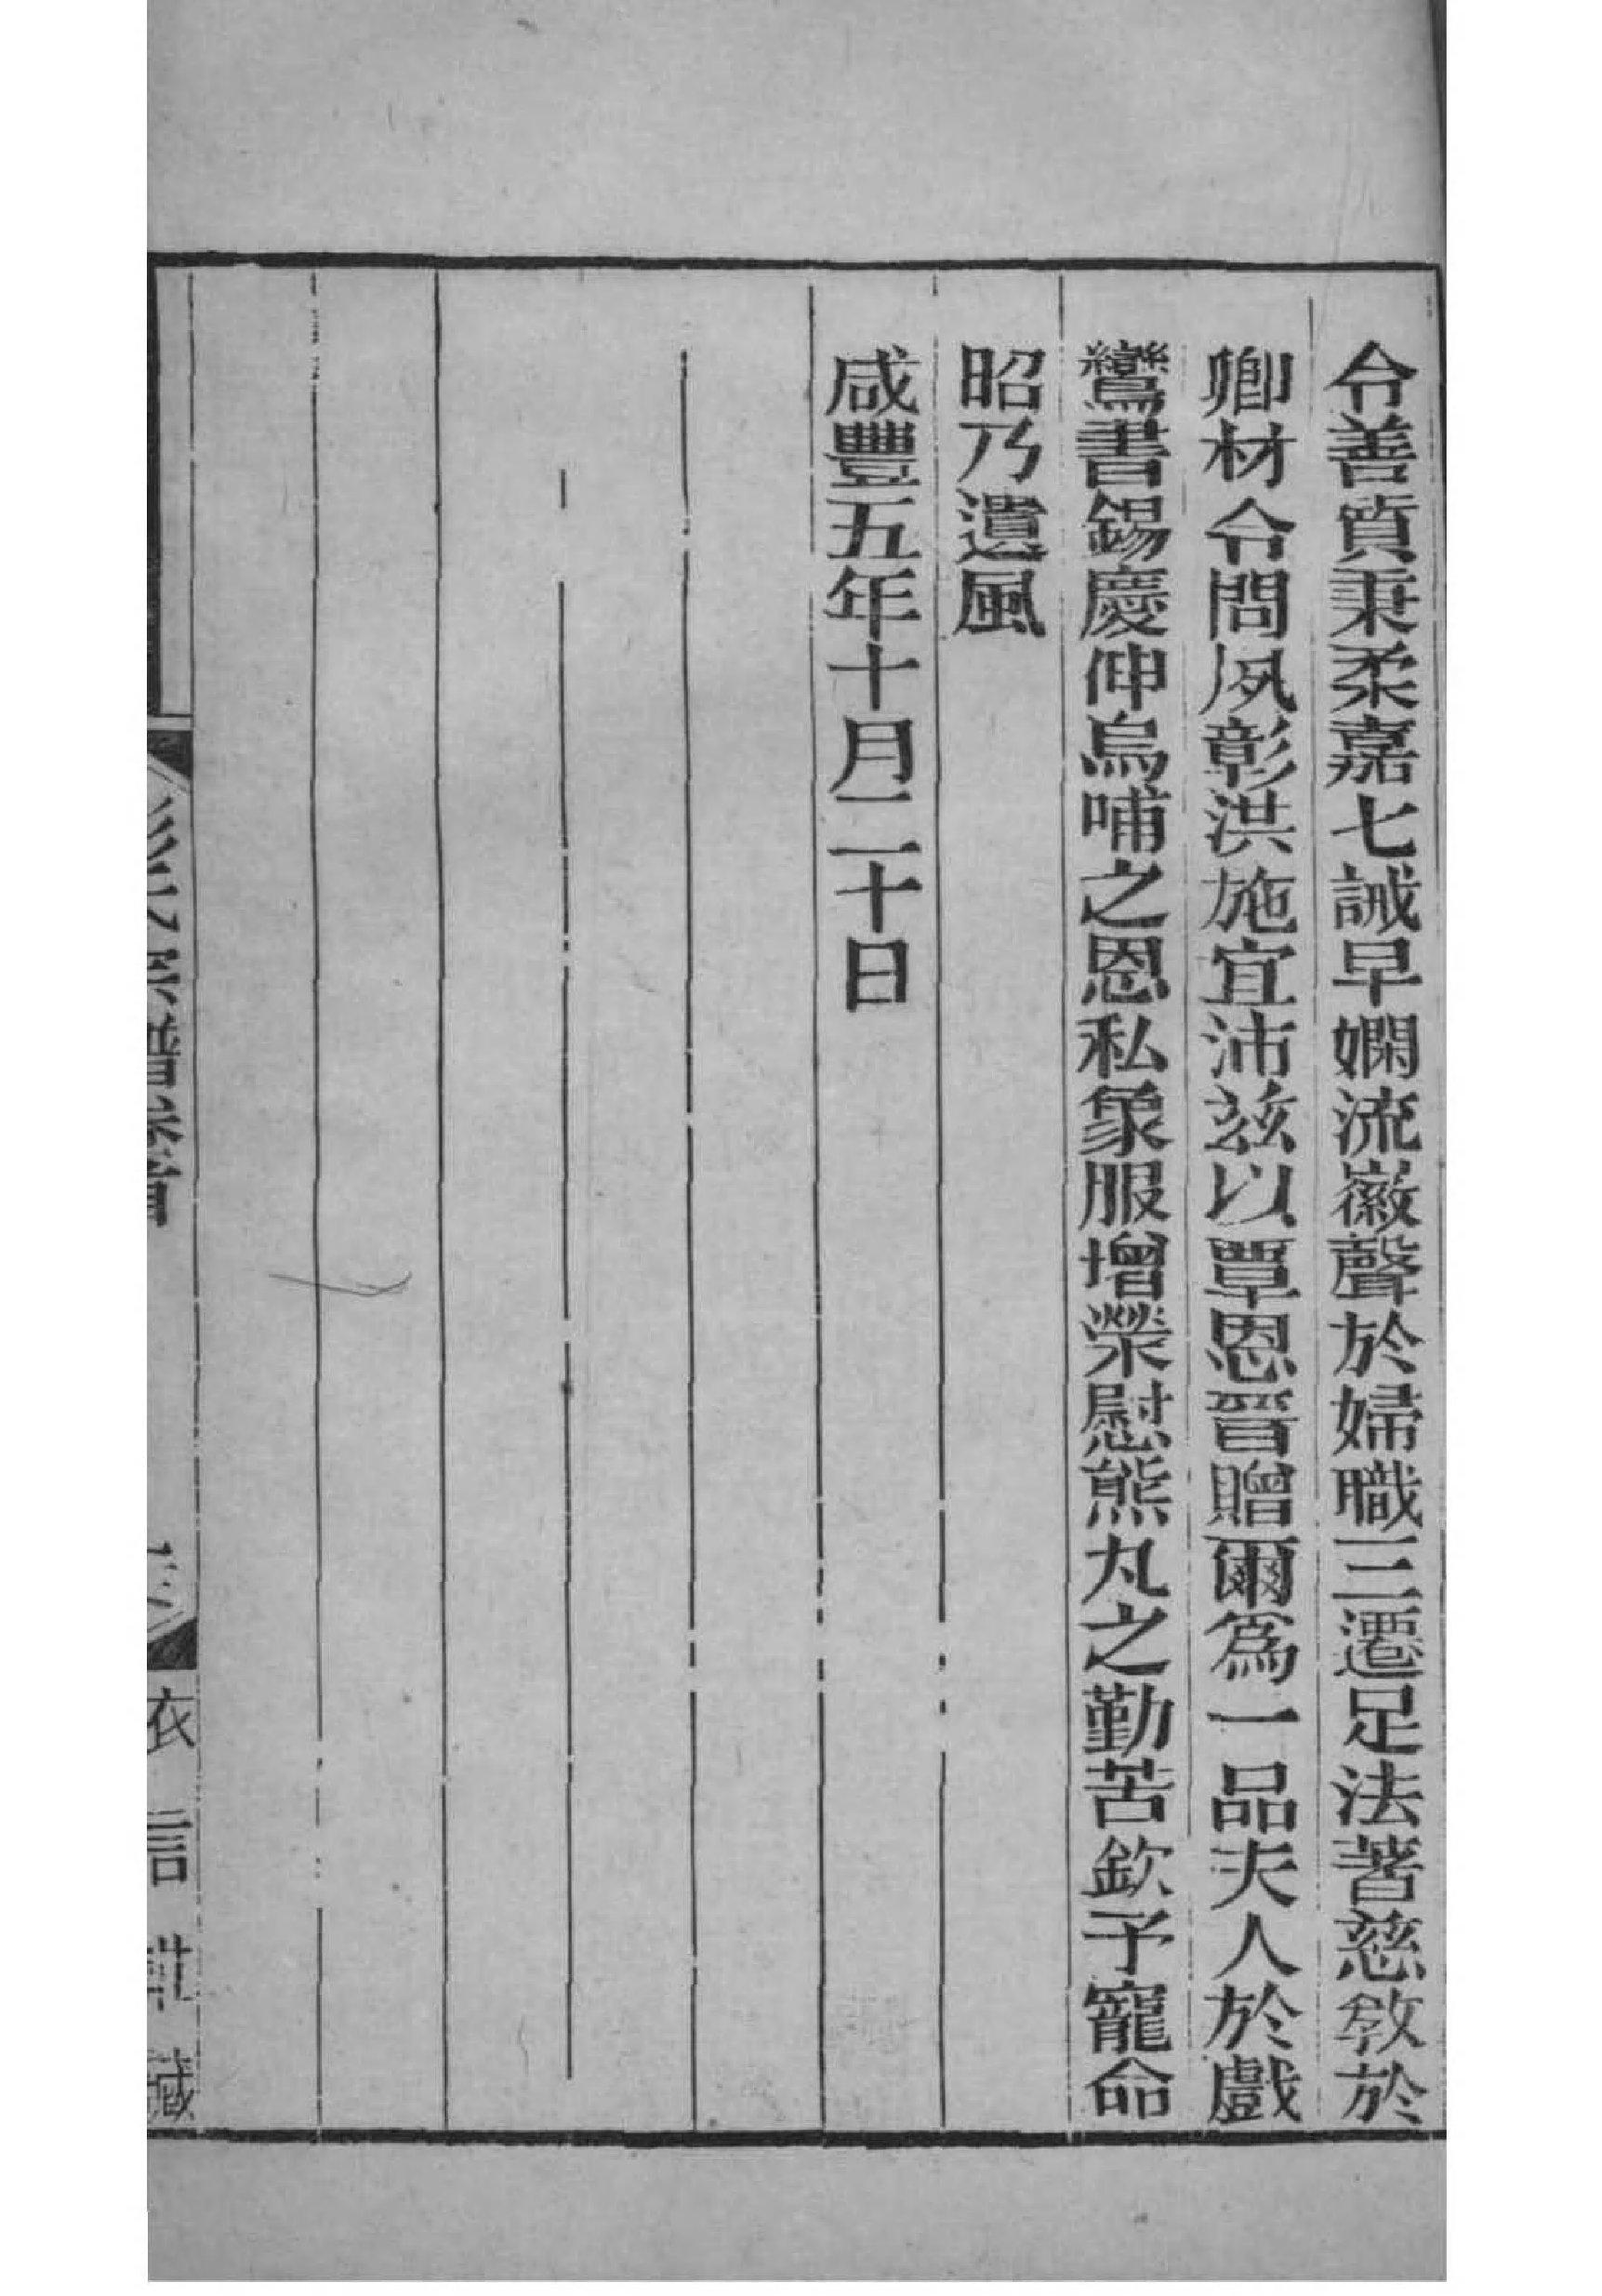 令善質秉柔嘉七誡早嫻流徽聲於婦職三遷足法著慈敎於
卿材令問夙彰洪施宜沛兹以覃恩晉贈爾爲一品夫人於戲
鸞書錫慶伸烏哺之恩私象服增榮慰熊丸之勤苦欽予寵命
昭乃遺風
咸豐五年十月二十日
彭氏宗譜卷首
衣言莊藏